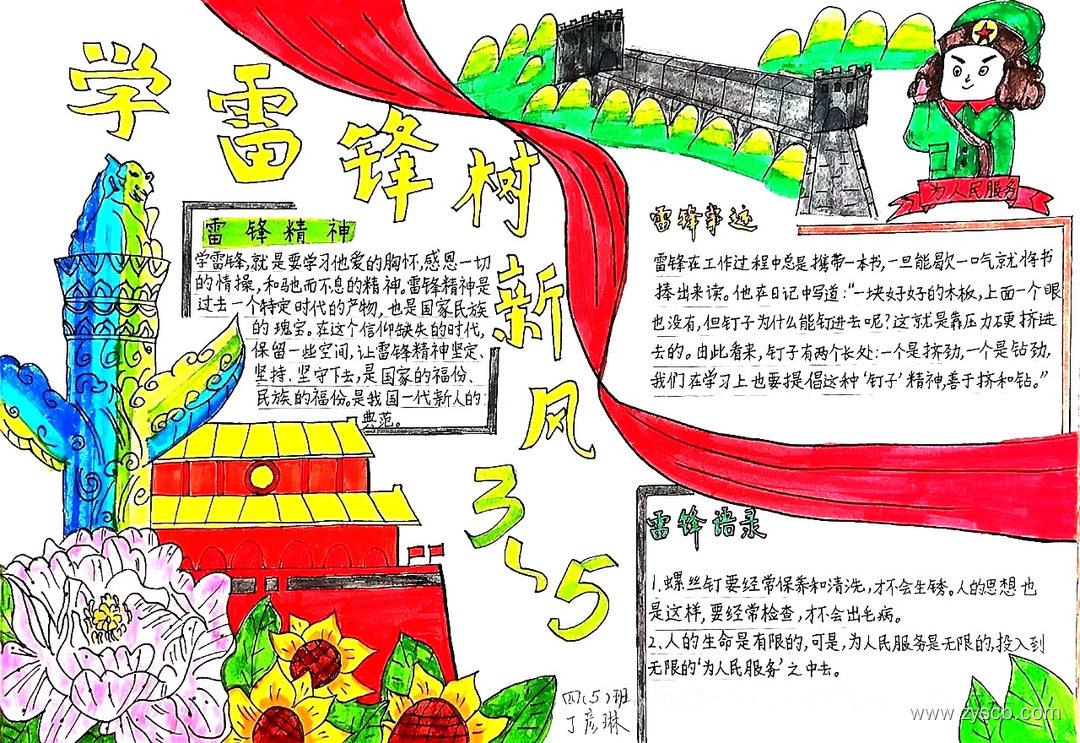 学雷锋树新风
3、5
雷锋精神
学雷锋,就是要学习他爱的胸怀,感恩一切
的情操,和驰而不息的精神。雷锋精神是
过去一个特定时代的产物,也是国家民族
的瑰宝。在这个信仰缺失的时代,
保留一些空间,让雷锋精神坚定、
坚持、坚守下去,是国家的福份、
民族的福份。是我国一代新人的
典范。
为人民服务
雷锋事迹
雷锋在工作过程中总是携带一本书,一旦能歇一口气就将书
捧出来读。他在日记中写道:“一块好好的木板,上面一个眼
也没有,但钉子为什么能钉进去呢?这就是靠压力硬挤进
去的。由此看来,钉子有两个长处:一个是挤劲,一个是钻劲,
我们在学习上也要提倡这种‘钉子’精神,善于挤和钻。”
雷锋语录
1.螺丝钉要经常保养和清洗,才不会生锈。人的思想也
是这样,要经常检查,才不会出毛病。
2、人的生命是有限的,可是,为人民服务是无限的,投入到
无限的‘为人民服务’之中去。
四(5)班
丁彦琳
www.zyscb.com